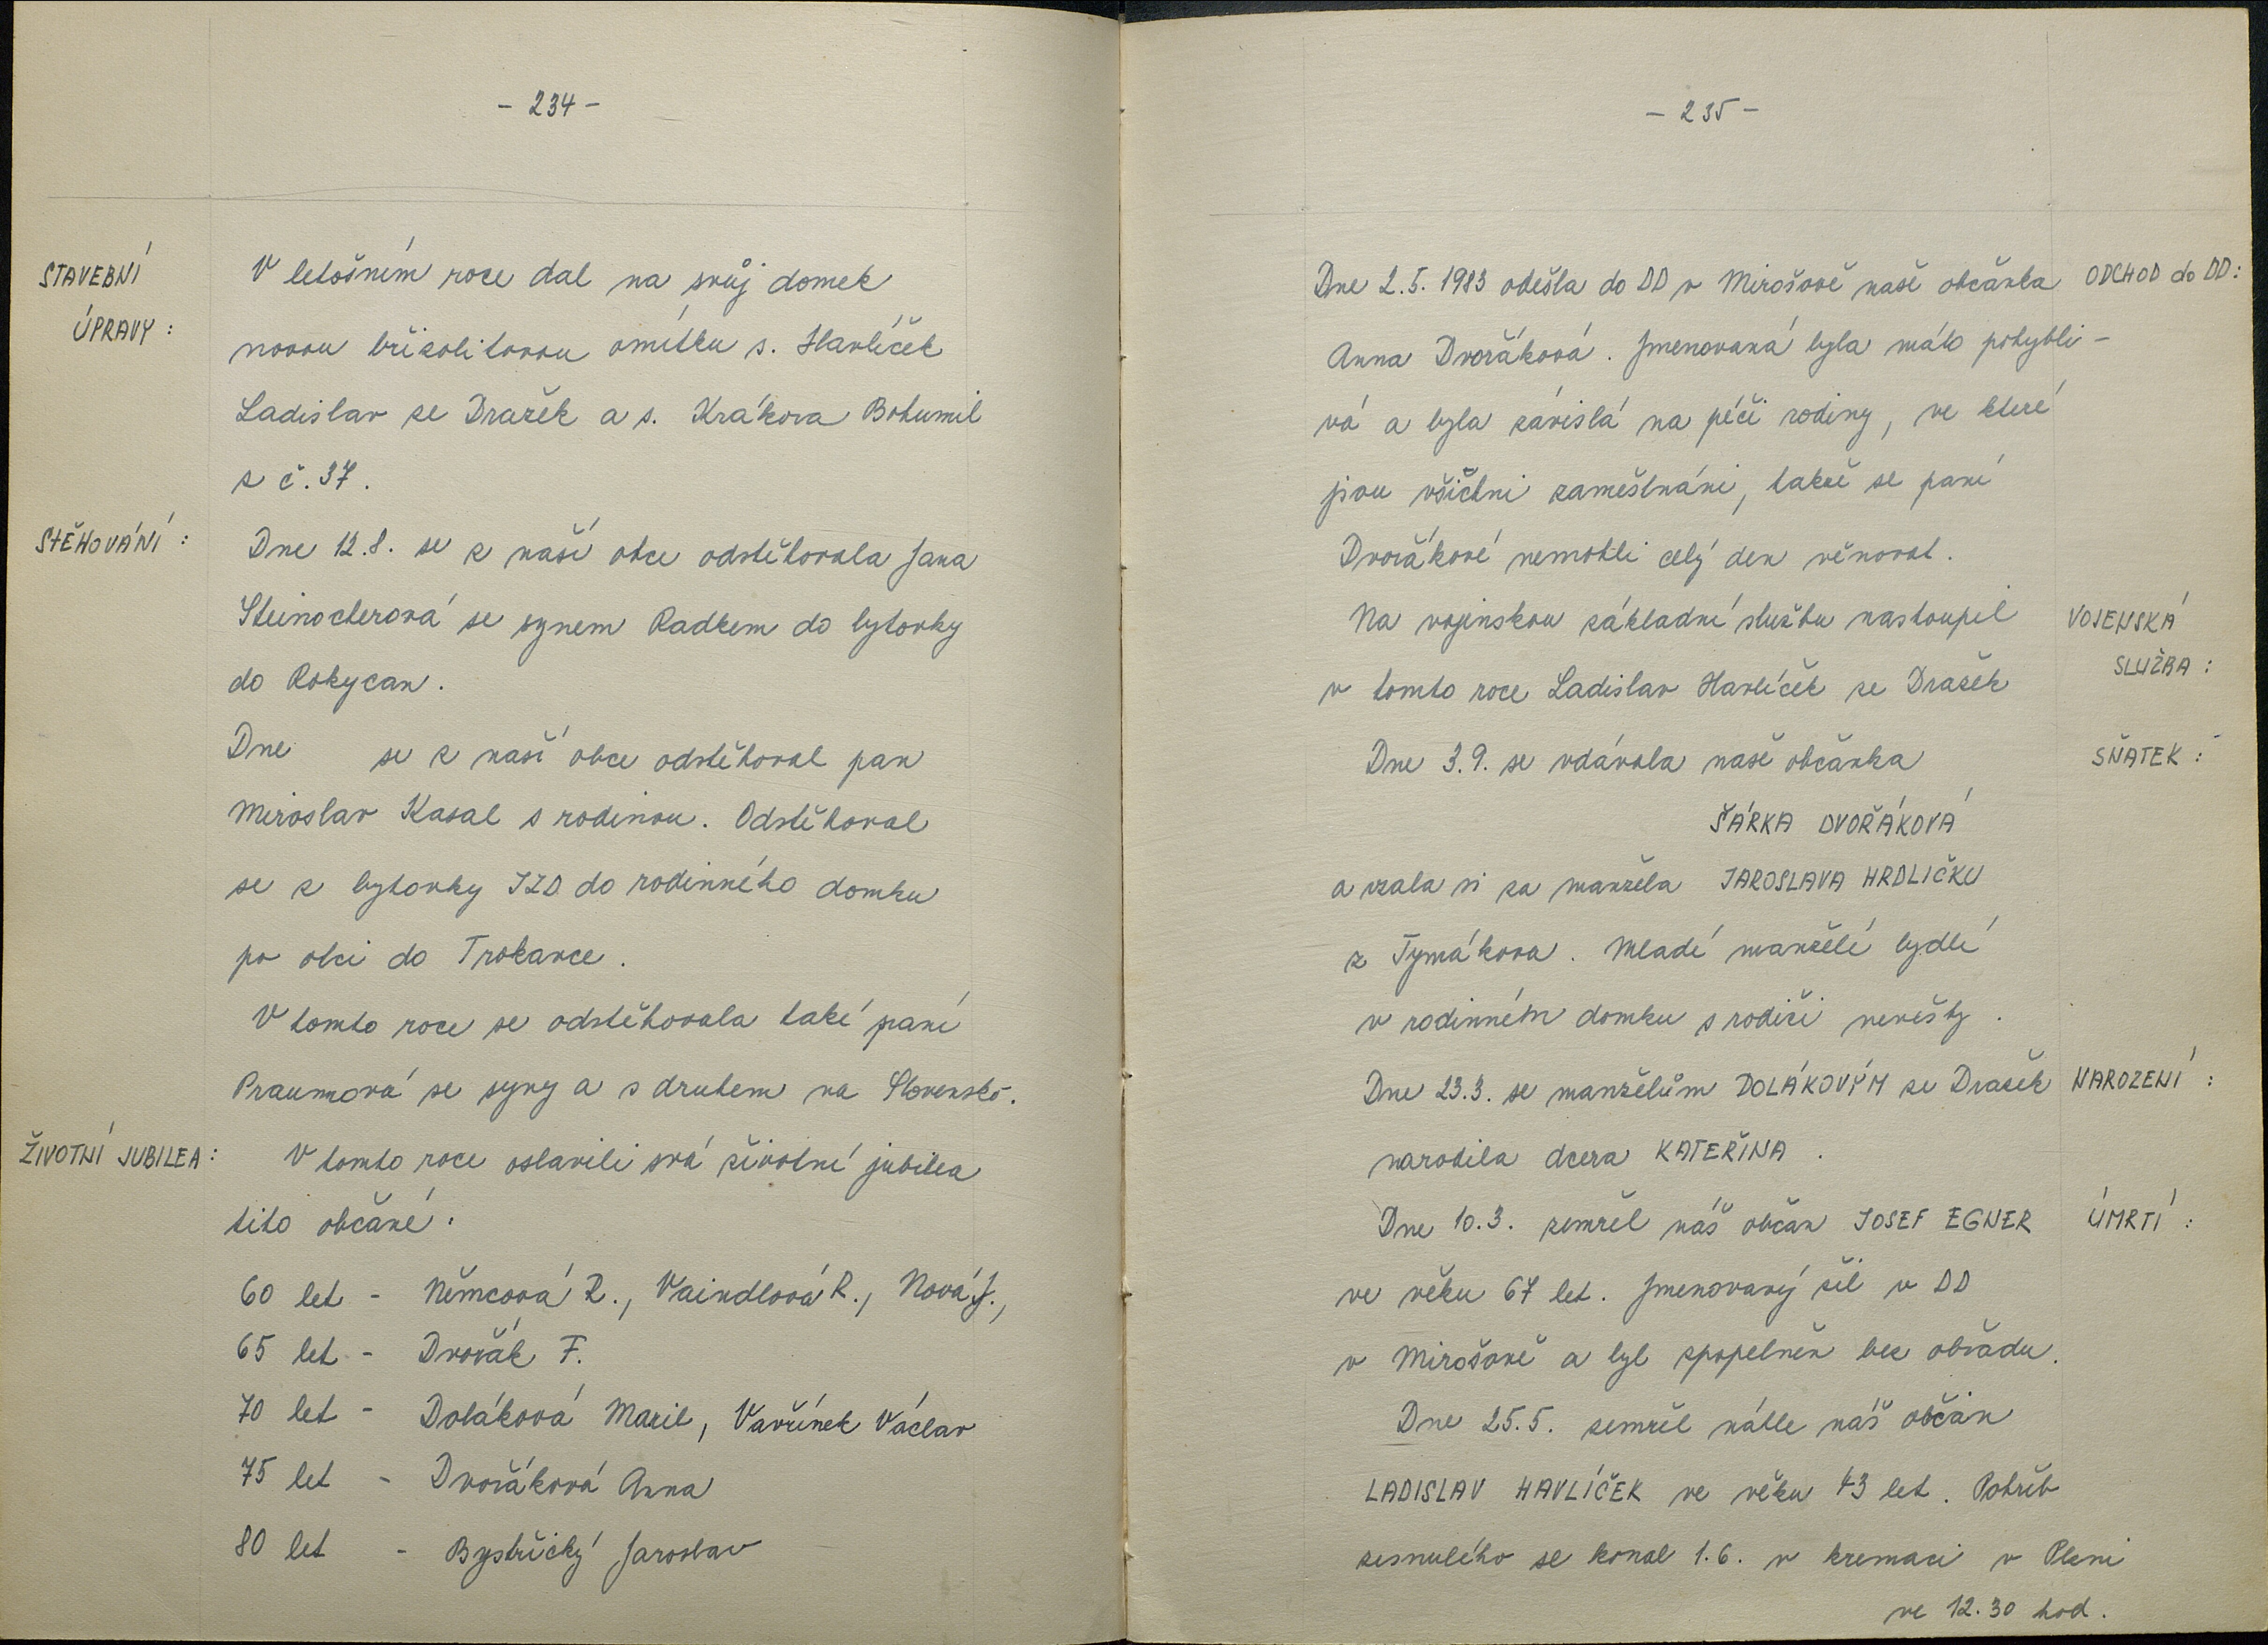 - 234 -
STAVEBNÍ
ÚPRAVY:
V letošním roce dal na svůj domek
novou břizolitovou omítku s. Havlíček
Ladislav ze Dražek a s. Krákora Bohumil
z č. 37.
STĚHOVÁNÍ:
Dne 12.8. se z naší obce odstěhovala Jana
Steinocherová se synem Radkem do bytovky
do Rokycan.
Dne se z naší obce odstěhoval pan
Miroslav Kasal s rodinou. Odstěhoval
se z bytovky JZD do rodinného domku
po obci do Trokavce.
V tomto roce se odstěhovala také paní
Praumová se syny a s druhem na Slovensko.
ŽIVOTNÍ JUBILEA:
V tomto roce oslavili svá životní jubilea
tito občané:
60 let - Němcová R., Vaindlová R., Nová J.,
65 let - Dvořák F.
70 let - Doláková Marie, Vavřínek Václav
75 let - Dvořáková Anna
80 let - Bystřický Jaroslav
- 235 -
Dne 2.5. 1983 odešla do DD v Mirošově naše občanka
ODCHOD do DD:
Anna Dvořáková. Jmenovaná byla málo pohybli-
vá a byla závislá na péči rodiny, ve které
jsou všichni zaměstnáni, takže se paní
Dvořákové nemohli celý den věnovat.
Na vojenskou základní službu nastoupil
VOJENSKÁ
SLUŽBA:
v tomto roce Ladislav Havlíček ze Dražek
Dne 3.9. se vdávala naše občanka
SŇATEK:
ŠÁRKA DVOŘÁKOVÁ
a vzala si za manžela JAROSLAVA HRDLIČKU
z Tymákova. Mladí manželé bydlí
v rodinném domku s rodiči nevěsty.
Dne 23.3. se manželům DOLÁKOVÝM ze Dražek
NAROZENÍ:
narodila dcera KATEŘINA.
Dne 10.3. zemřel náš občan JOSEF EGNER
ÚMRTÍ:
ve věku 67 let. Jmenovaný žil v DD
v Mirošově a byl zpopelněn bez obřadu.
Dne 25.5. zemřel náhle náš občan
LADISLAV HAVLÍČEK ve věku 43 let. Pohřeb
zesnulého se konal 1.6. v kremaci v Plzni
ve 12.30 hod.